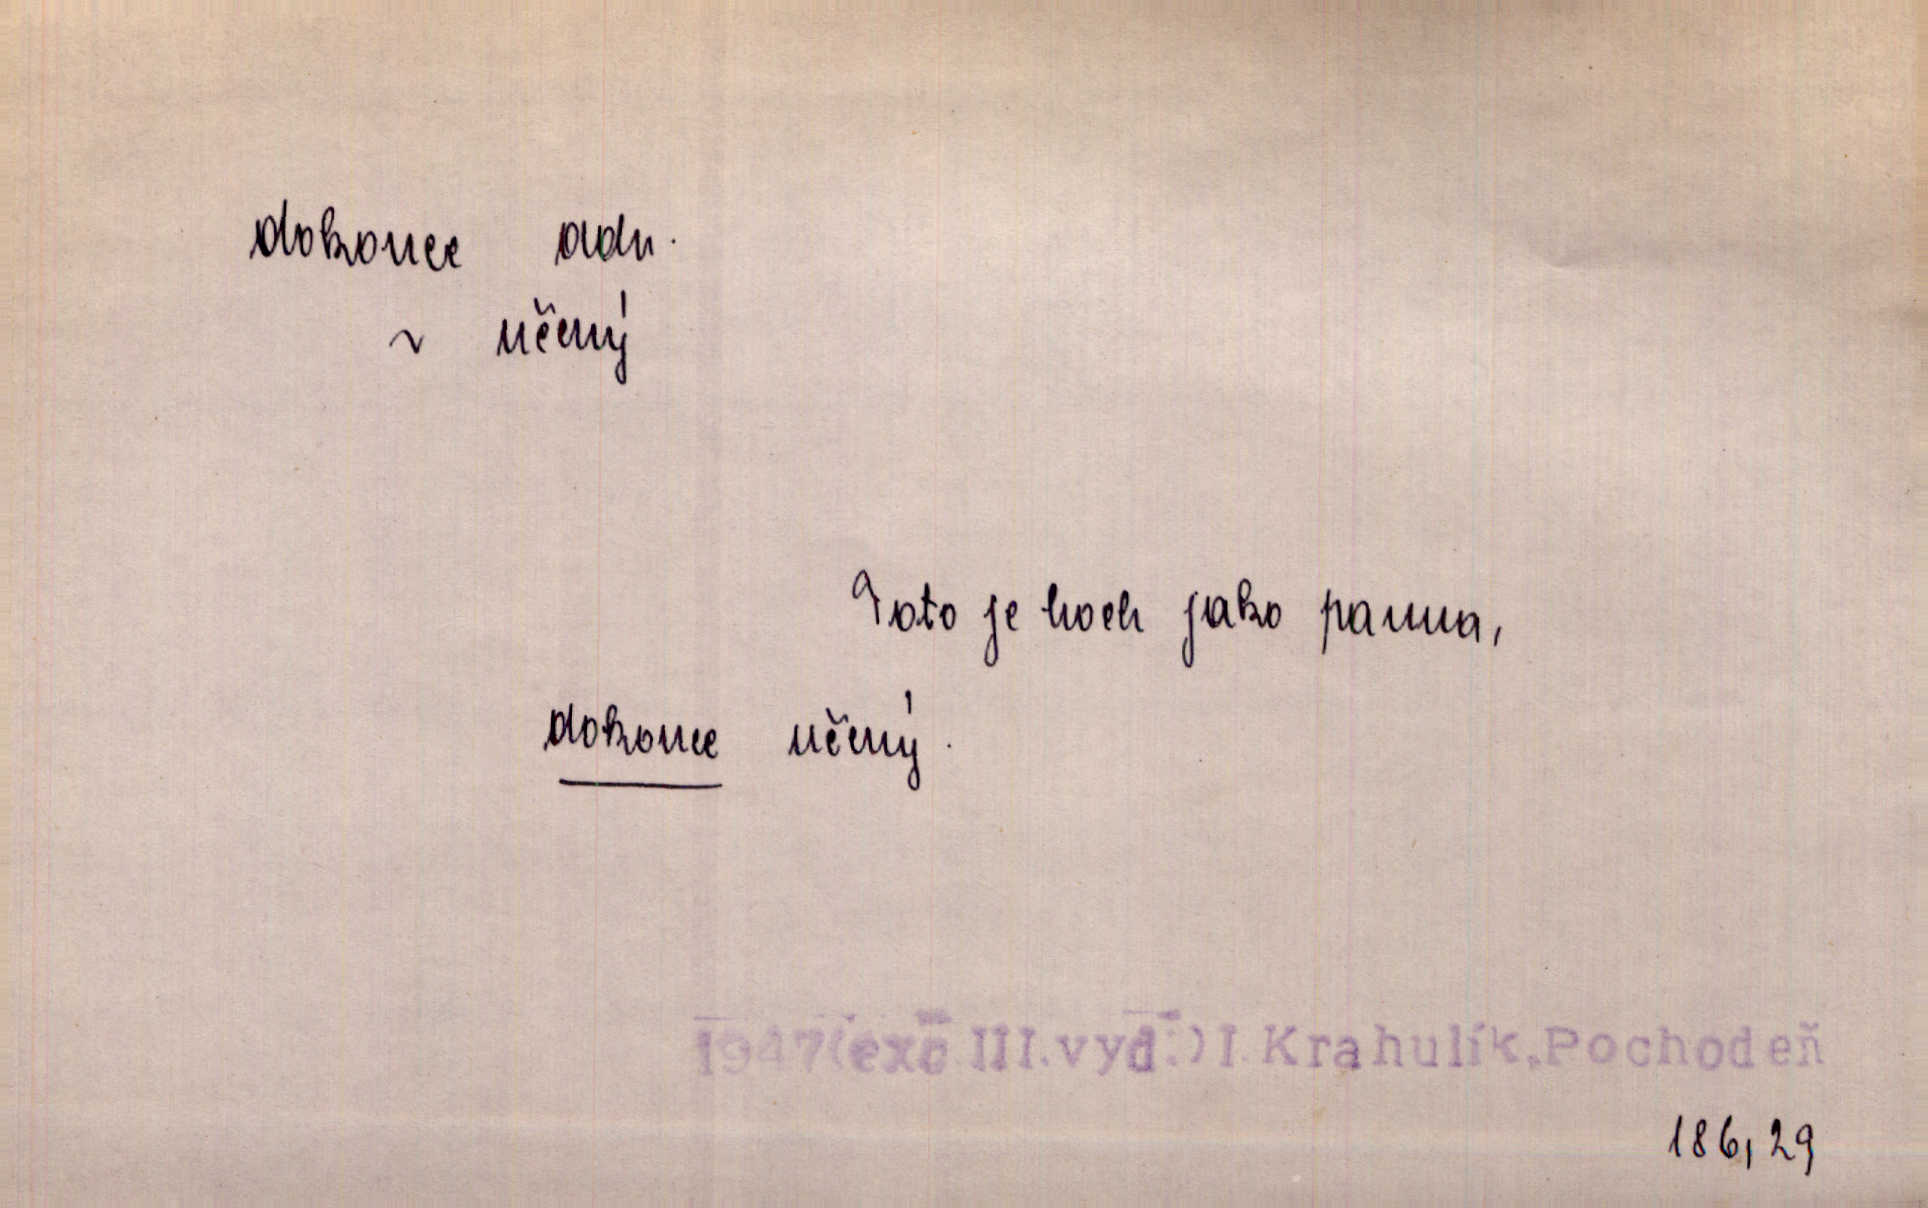 dokonce adv.
~ učený
Toto je hoch jako panna,
dokonce učený.
1947(exc III.vyd.) I. Krahulík, Pochodeň
186, 29